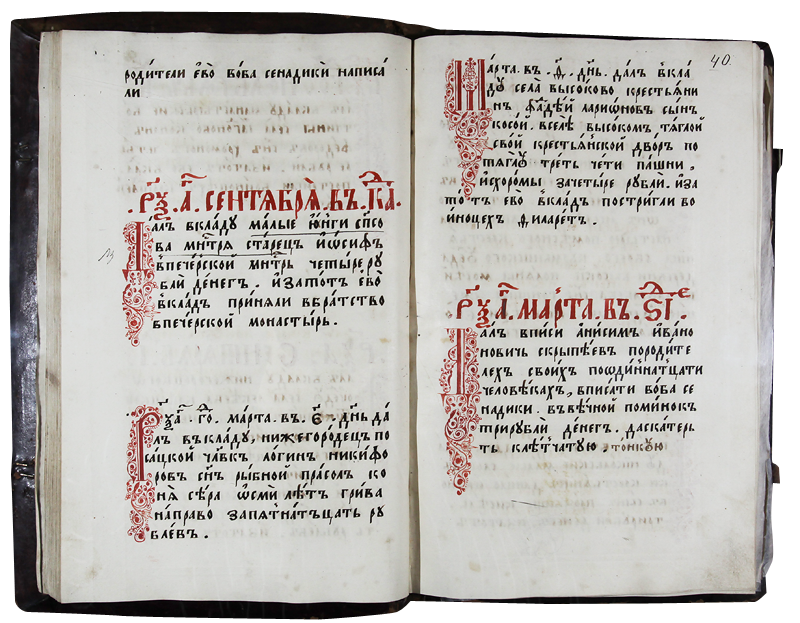 родители ѐво̀ воба сенадикѝ написа
ли
.РЎЗ. А҃. СЕНТЯБРЯ̀. В Ъ. К҃А.
Далъ вкла́ду ма́лые ю̑нги спсо
ва мн҃тря ста́рецъ ио́сифъ
впече́рской мн҃трь четы́ре ру
бли́ де́негъ. и҆затотъ е҆во̀
вкла́дъ при́няли вбра́тство
впече́рской монасты́рь.
Рў҃за҃. го҃. ма́рта. въ. е҃. дн҃ь да́
лъ въкла́ду, нижегоро́децъ по
са́цкой чл҃вкъ ло́гинъ ники́фо
ровъ сн҃ъ ры́бной пра́солъ ко
ня̀ сѣ́ра ѻсмѝ лѣ́тъ гри́ва
на́право запятна́тцать ру
бле́въ.
40.
Ма́рта. въ. д҃. дн҃ь. да́лъ вкла́
ду̀ села̀ высо́ково крестья́ни
нъ фаде́й ларио́новъ сы́нъ
косо́й. вселѣ̀ высо́комъ тя́глой
сво́й крестья́нской дво́ръ по
тя́глу̀ тре́ть че́ти па́шни,
и҆схоро́мы зачеты́ре рубли́. и҆за
то́тъ ево̀ вкла́дъ постри́гли во
и́ноцехъ филаре́тъ.
РЎЗ. А҃. МА́РТА. ВЪ. Ѕ҃І е
Далъ впи́си ани́симъ ива́но
новичь скрыпѣ́евъ породи́те
лехъ свои́хъ поѡди́ннатцати
человѣ́кахъ, вписа́ти воба се
на́дики. въвѣ́чной поми́нокъ
трирубли́ де́негъ. даска́терь
ть клѣ́тчатую, то́нкую